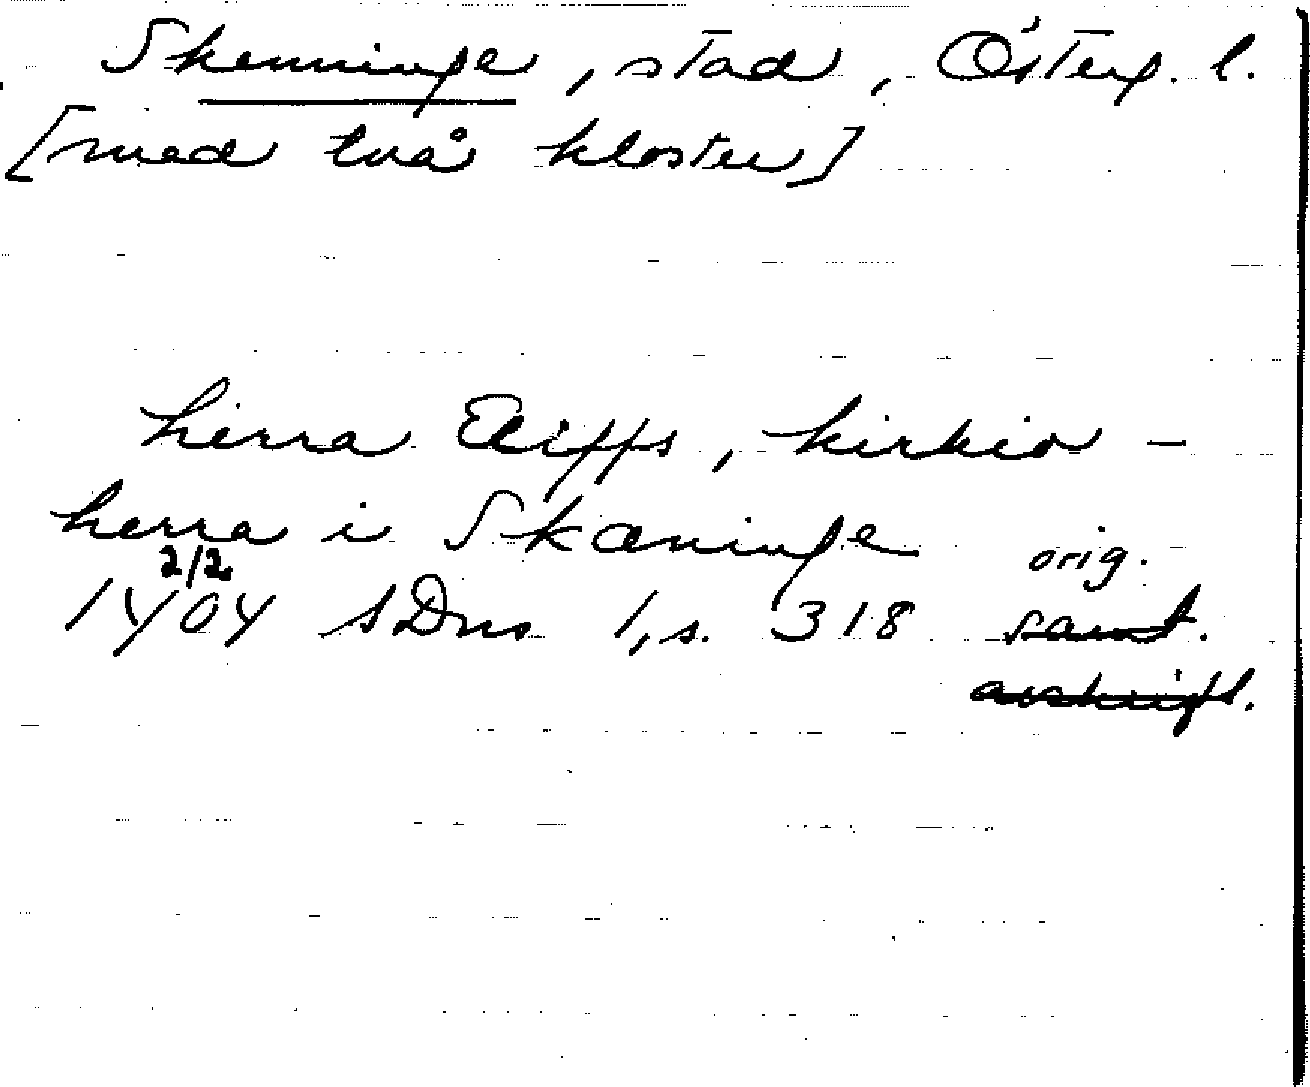 Skenninge, stad, Österg. l.
[med två kloster]
herra Eliffs, kirkio-
herra i Skæninge orig.
2/2
1404 SDns 1, s. 318 samt.
avskrift.